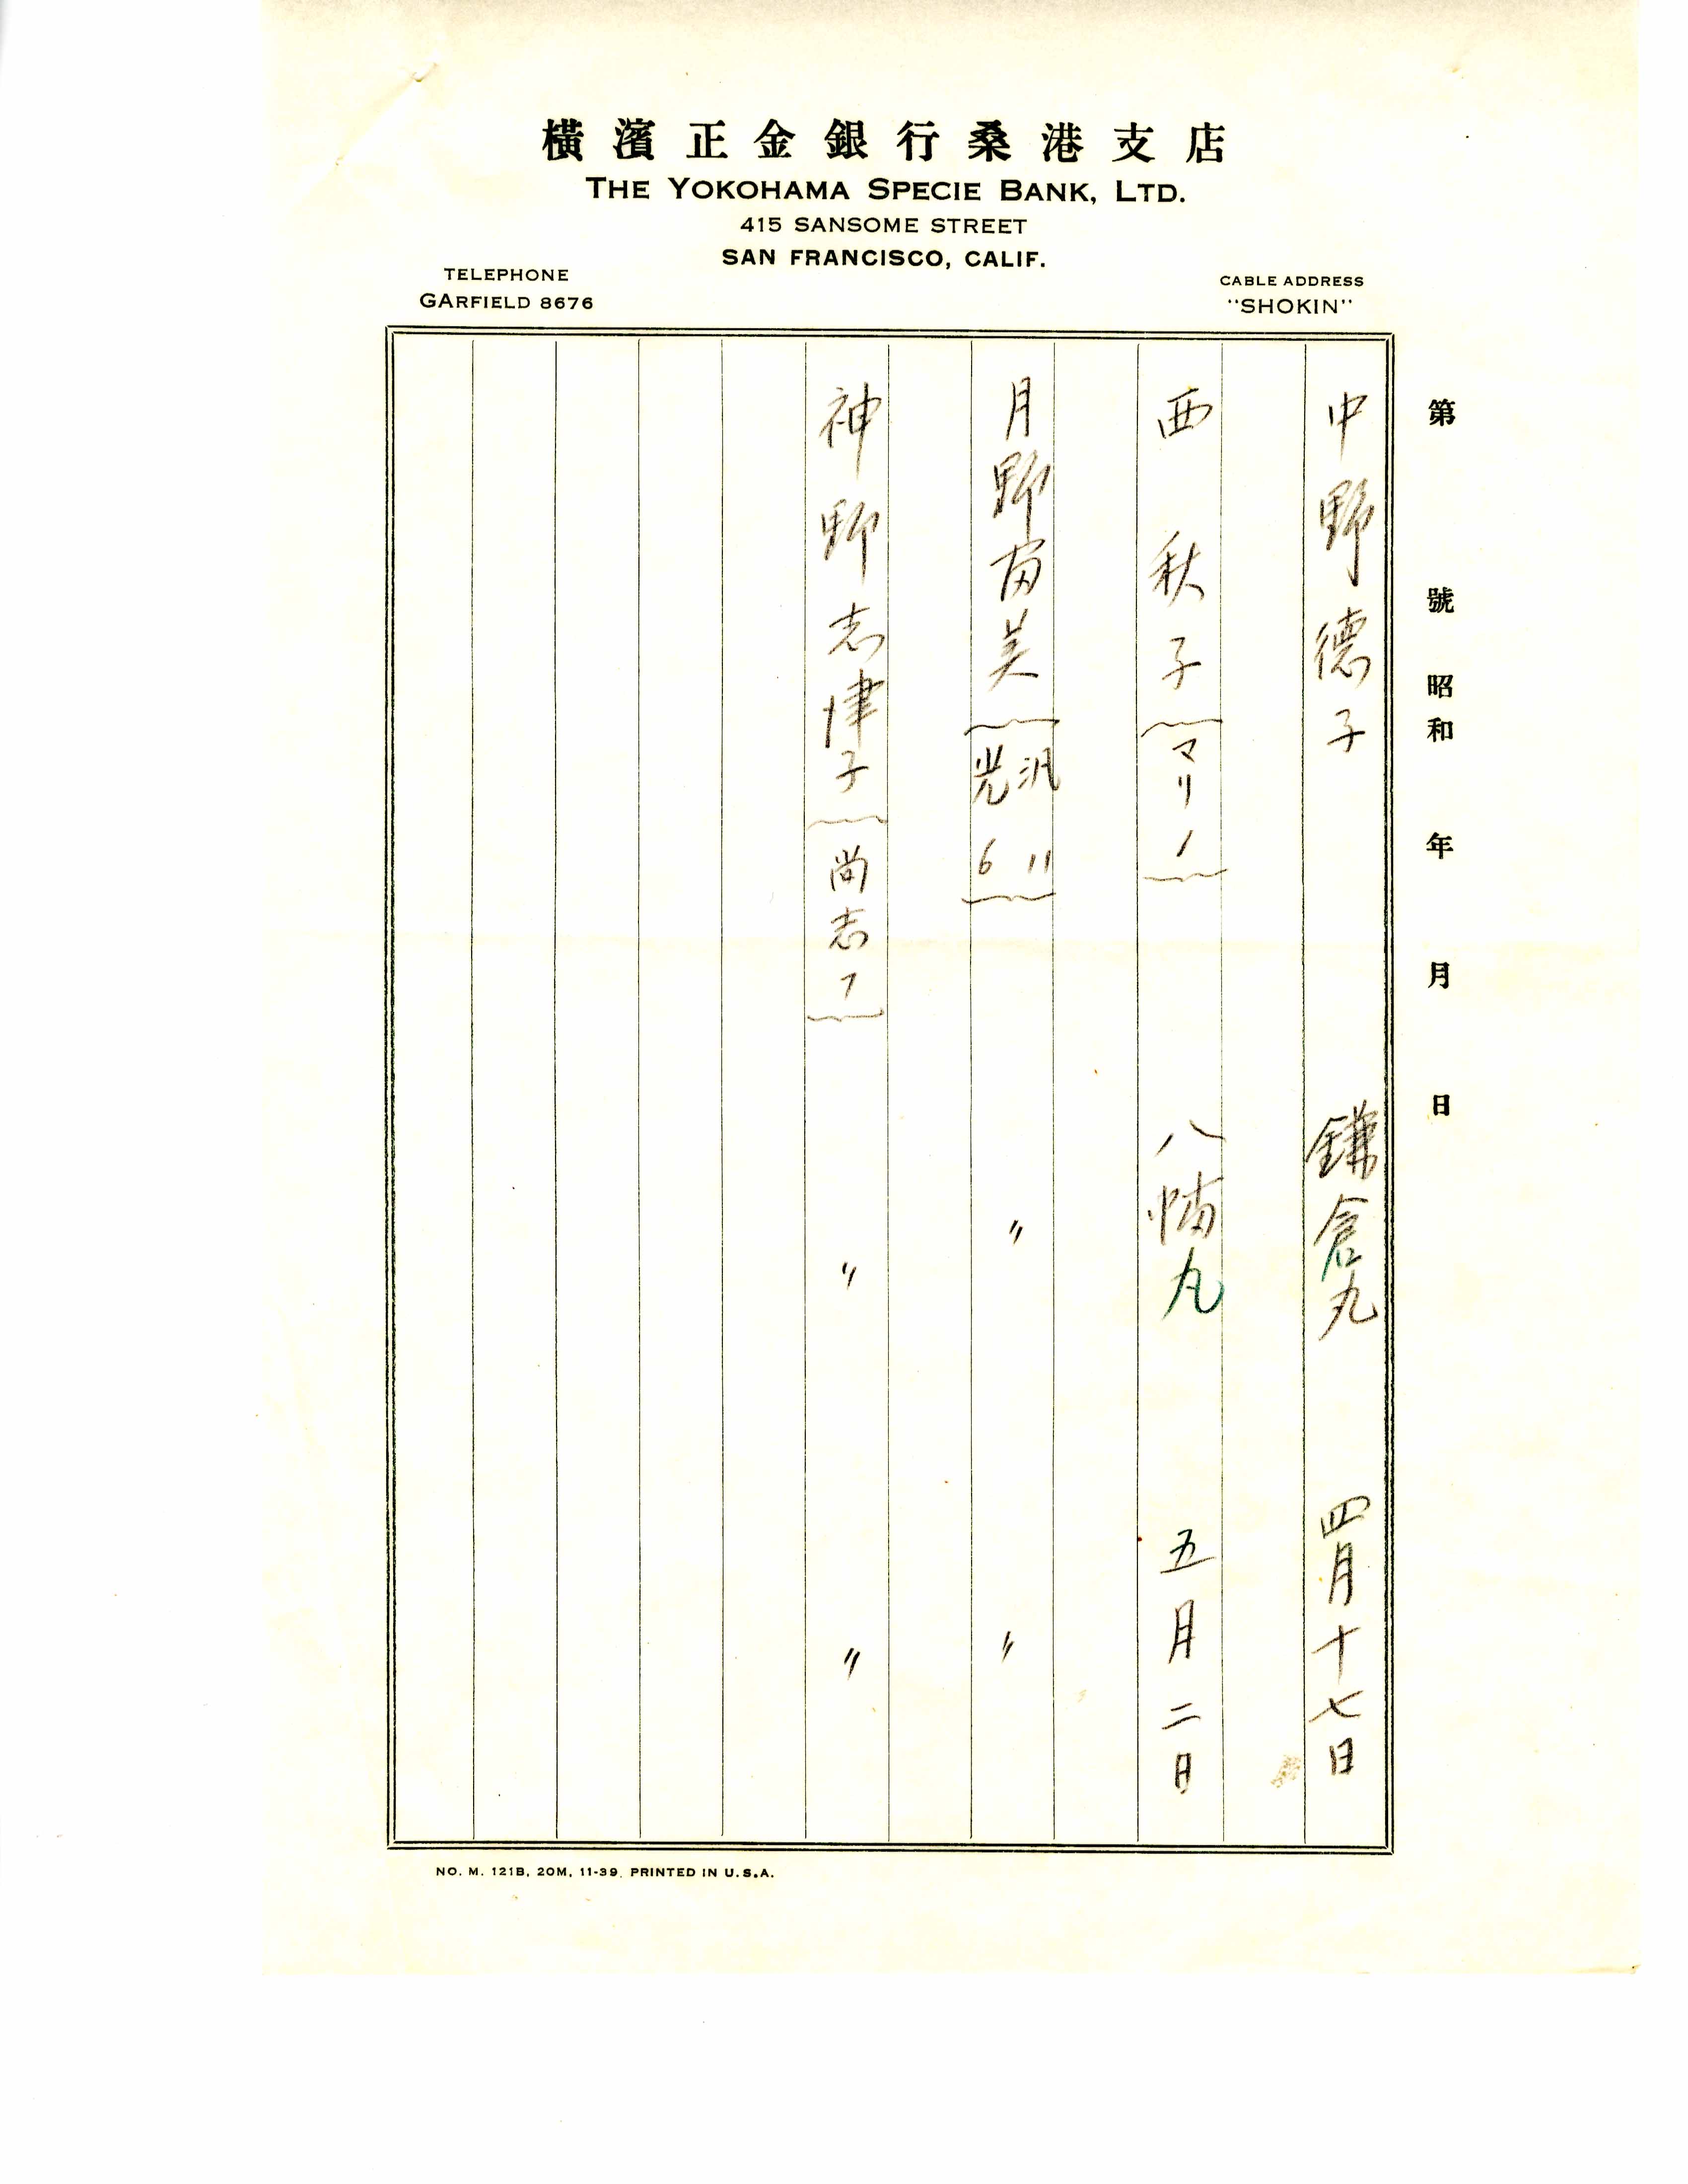 橫濱正金銀行桑港支店
THE YOKOHAMA SPECIE BANK, LTD.
415 SANSOME STREET
SAN FRANCISCO, CALIF.
TELEPHONE
GARFIELD 8676
CABLE ADDRESS
"SHOKIN"
第 號 昭和 年 月 日
中野德子 鎌倉丸 四月十七日
西 秋子(マリ1) 八幡丸 五月二日
月野富美(汎11 光6) 〃 〃
神野志津子(尚志7) 〃 〃
NO. M. 121B, 20M, 11-39, PRINTED IN U.S.A.